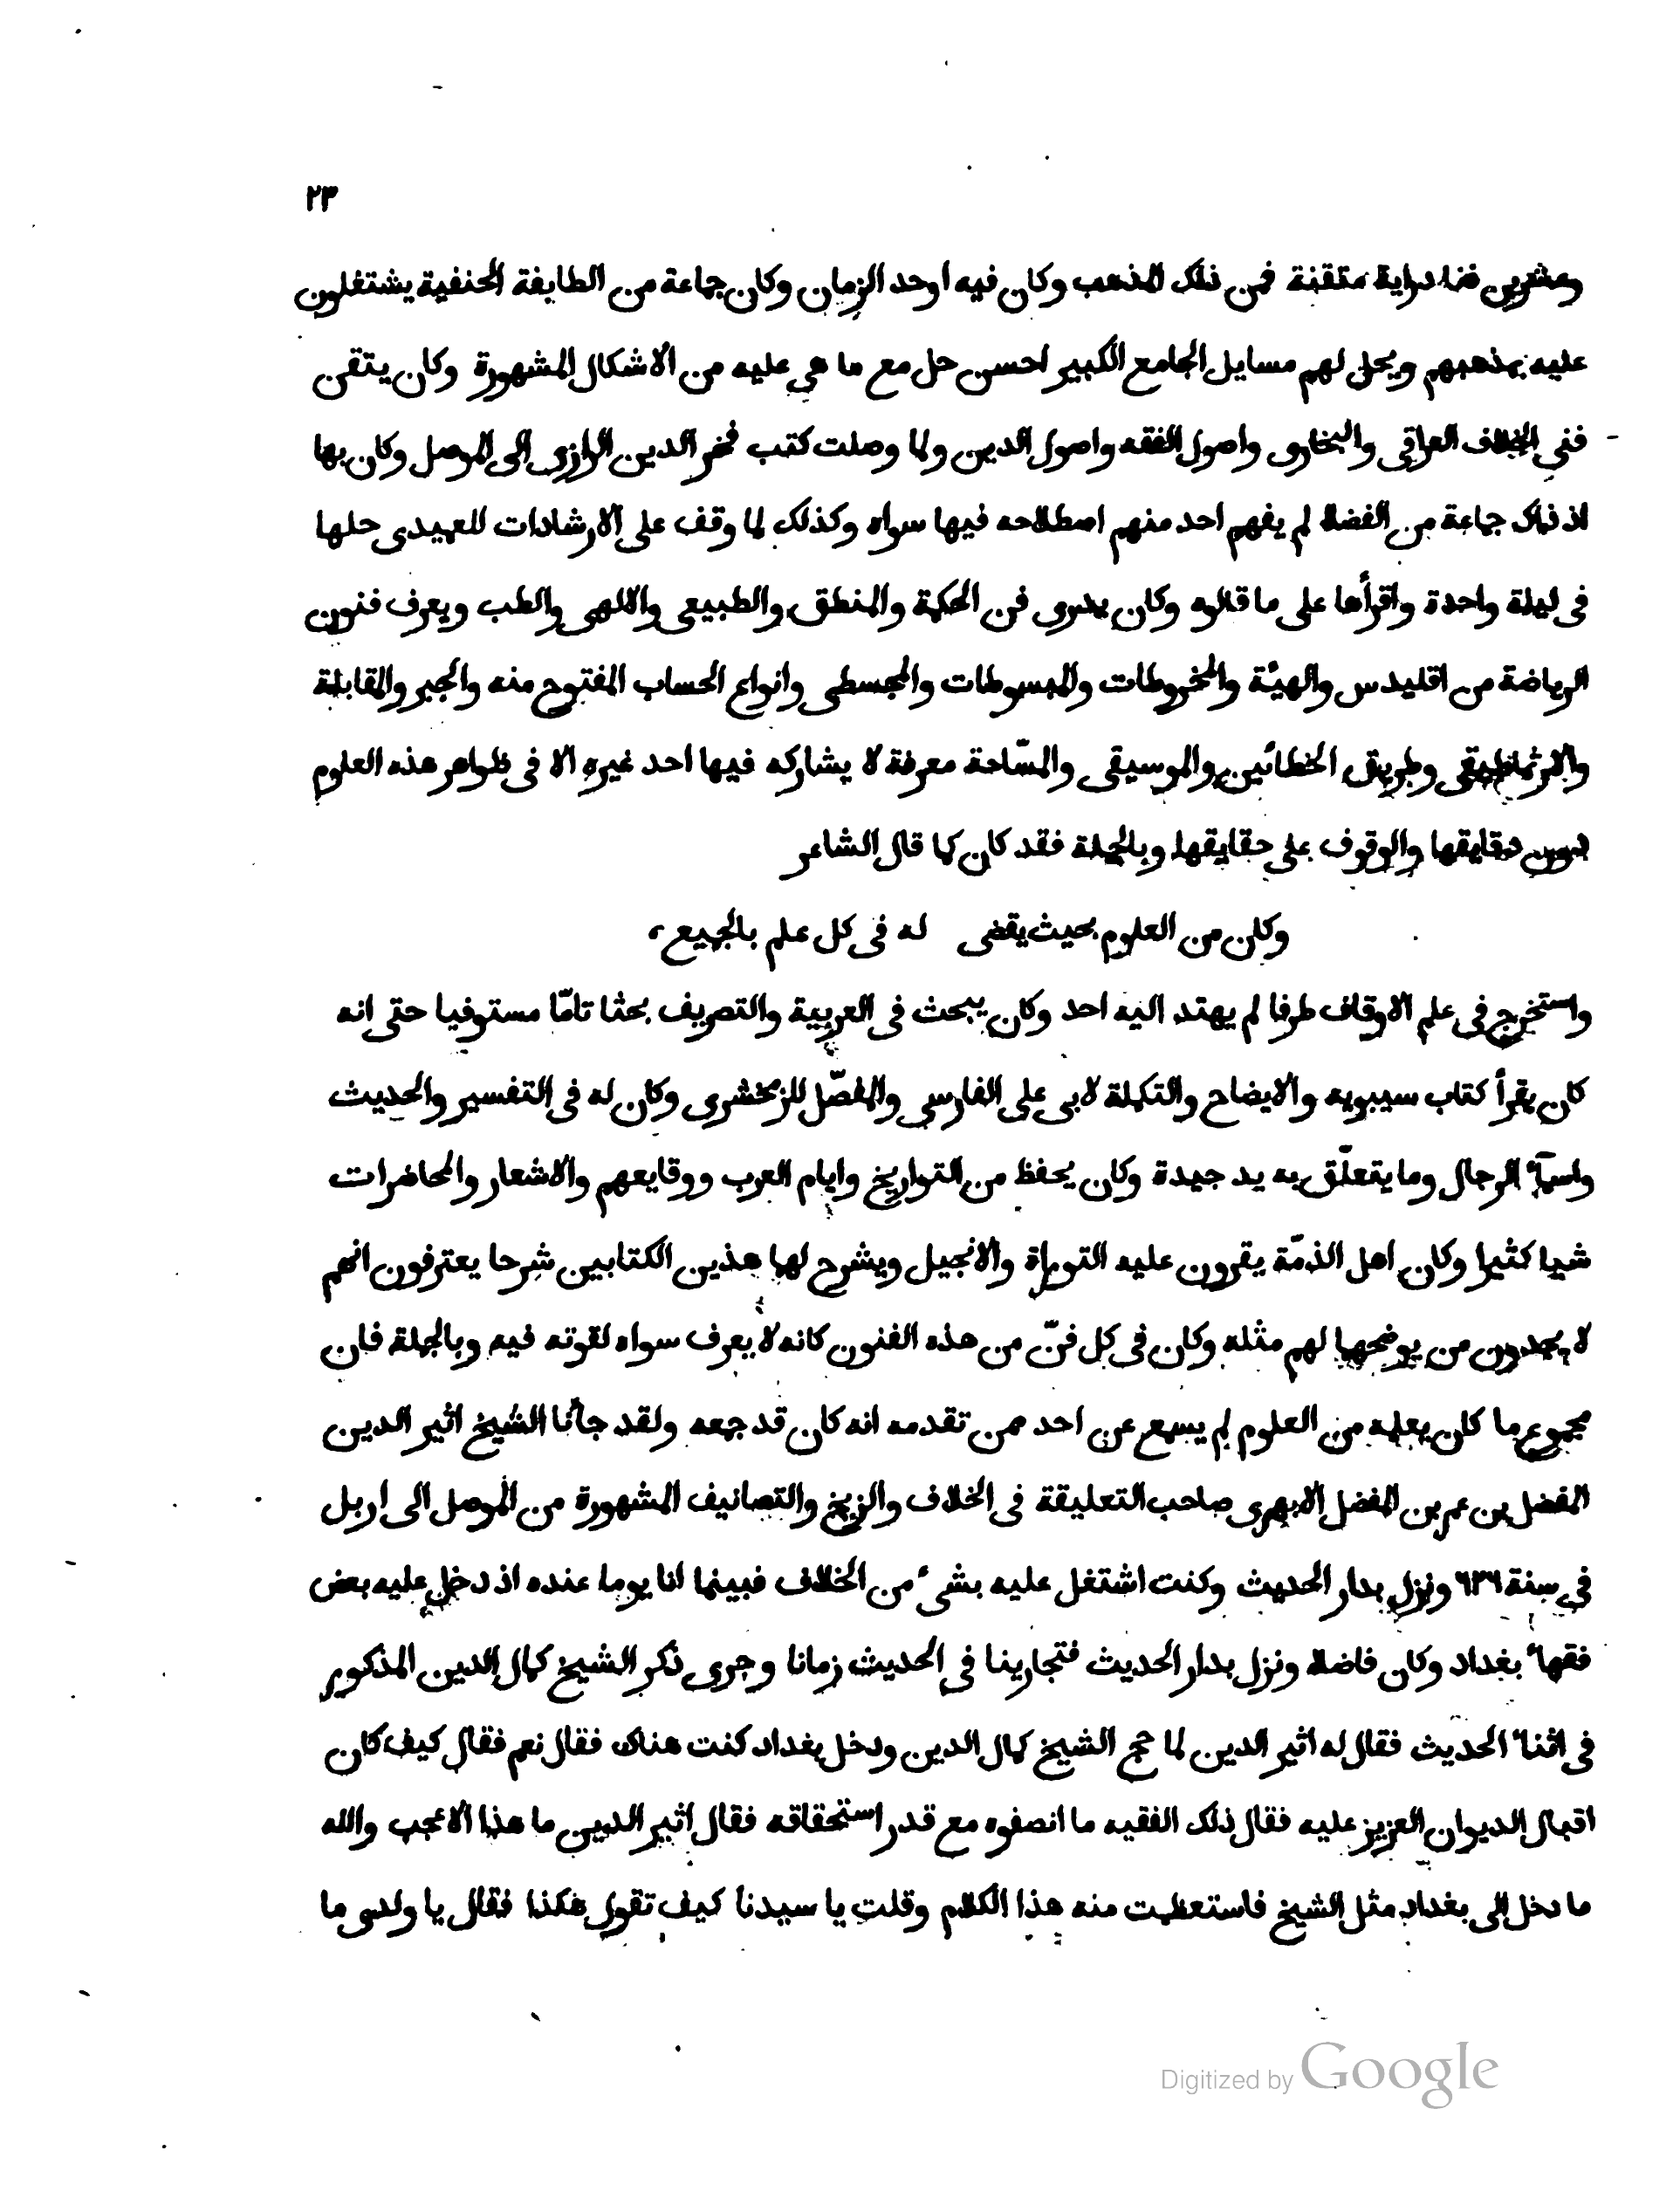 ٢٣
وعشرين فنا دراية متقنة فمن ذلك المذهب وكان فيه اوحد الزمان وكان جماعة من الطايفة الحنفية يشتغلون
عليه بمذهبهم ويحل لهم مسايل الجامع الكبير احسن حل مع ما هى عليه من الاشكال المشهورة وكان يتقن
فنى الخلاف العراقى والبخارى واصول الفقه واصول الدين ولما وصلت كتب فخر الدين الرازى الى الموصل وكان بها
اذ ذاك جماعة من الفضلا لم يفهم احد منهم اصطلاحه فيها سواه وكذلك لما وقف على الارشادات للعميدى حلها
فى ليلة واحدة واقرأها على ما قالوه وكان يدرى فن الحكمة والمنطق والطبيعى والالهى والطب ويعرف فنون
الرياضة من اقليدس والهيئة والمخروطات والمبسوطات والمجسطى وانواع الحساب المفتوح منه والجبر والمقابلة
والارثماطيقى وطريق الخطائين والموسيقى والمسّاحة معرفة لا يشاركه فيها احد غيره الا فى ظواهر هذه العلوم
دون دقايقها والوقوف على حقايقها وبالجملة فقد كان كما قال الشاعر
وكان من العلوم بحيث يقضى له فى كل علم بالجميع،
واستخرج فى علم الاوقاف طرفا لم يهتد اليه احد وكان يبحث فى العربية والتصريف بحثا تامّا مستوفيا حتى انه
كان يقرأ كتاب سيبويه والايضاح والتكملة لابى على الفارسى والمفصّل للزمخشرى وكان له فى التفسير والحديث
واسمآء الرجال وما يتعلّق به يد جيدة وكان يحفظ من التواريخ وايام العرب ووقايعهم والاشعار والمحاضرات
شيا كثيرا وكان اهل الذمّة يقرون عليه التوراة والانجيل ويشرح لها هذين الكتابين شرحا يعترفون انهم
لا يجدون من يوضحها لهم مثله وكان فى كل فنّ من هذه الفنون كانه لا يعرف سواه لقوته فيه وبالجملة فان
مجموع ما كان يعلمه من العلوم لم يسمع عن احد ممن تقدمه انه كان قد جمعه ولقد جأنا الشيخ اثير الدين
المفضل بن عمر بن المفضل الابهرى صاحب التعليقة فى الخلاف والزيج والتصانيف المشهورة من الموصل الى اربل
فى سنة ٦٢٦ ونزل بدار الحديث وكنت اشتغل عليه بشىء من الخلاف فبينما انا يوما عنده اذ دخل عليه بعض
فقهاء بغداد وكان فاضلا ونزل بدار الحديث فتجارينا فى الحديث زمانا وجرى ذكر الشيخ كمال الدين المذكور
فى اثناء الحديث فقال له اثير الدين لما حج الشيخ كمال الدين ودخل بغداد كنت هناك فقال نعم فقال كيف كان
اقبال الديوان العزيز عليه فقال ذلك الفقيه ما انصفوه مع قدر استحقاقه فقال اثير الدين ما هذا الا عجب والله
ما دخل الى بغداد مثل الشيخ فاستعظمت منه هذا الكلام وقلت يا سيدنا كيف تقول هكذا فقال يا ولدى ما
Digitized by Google